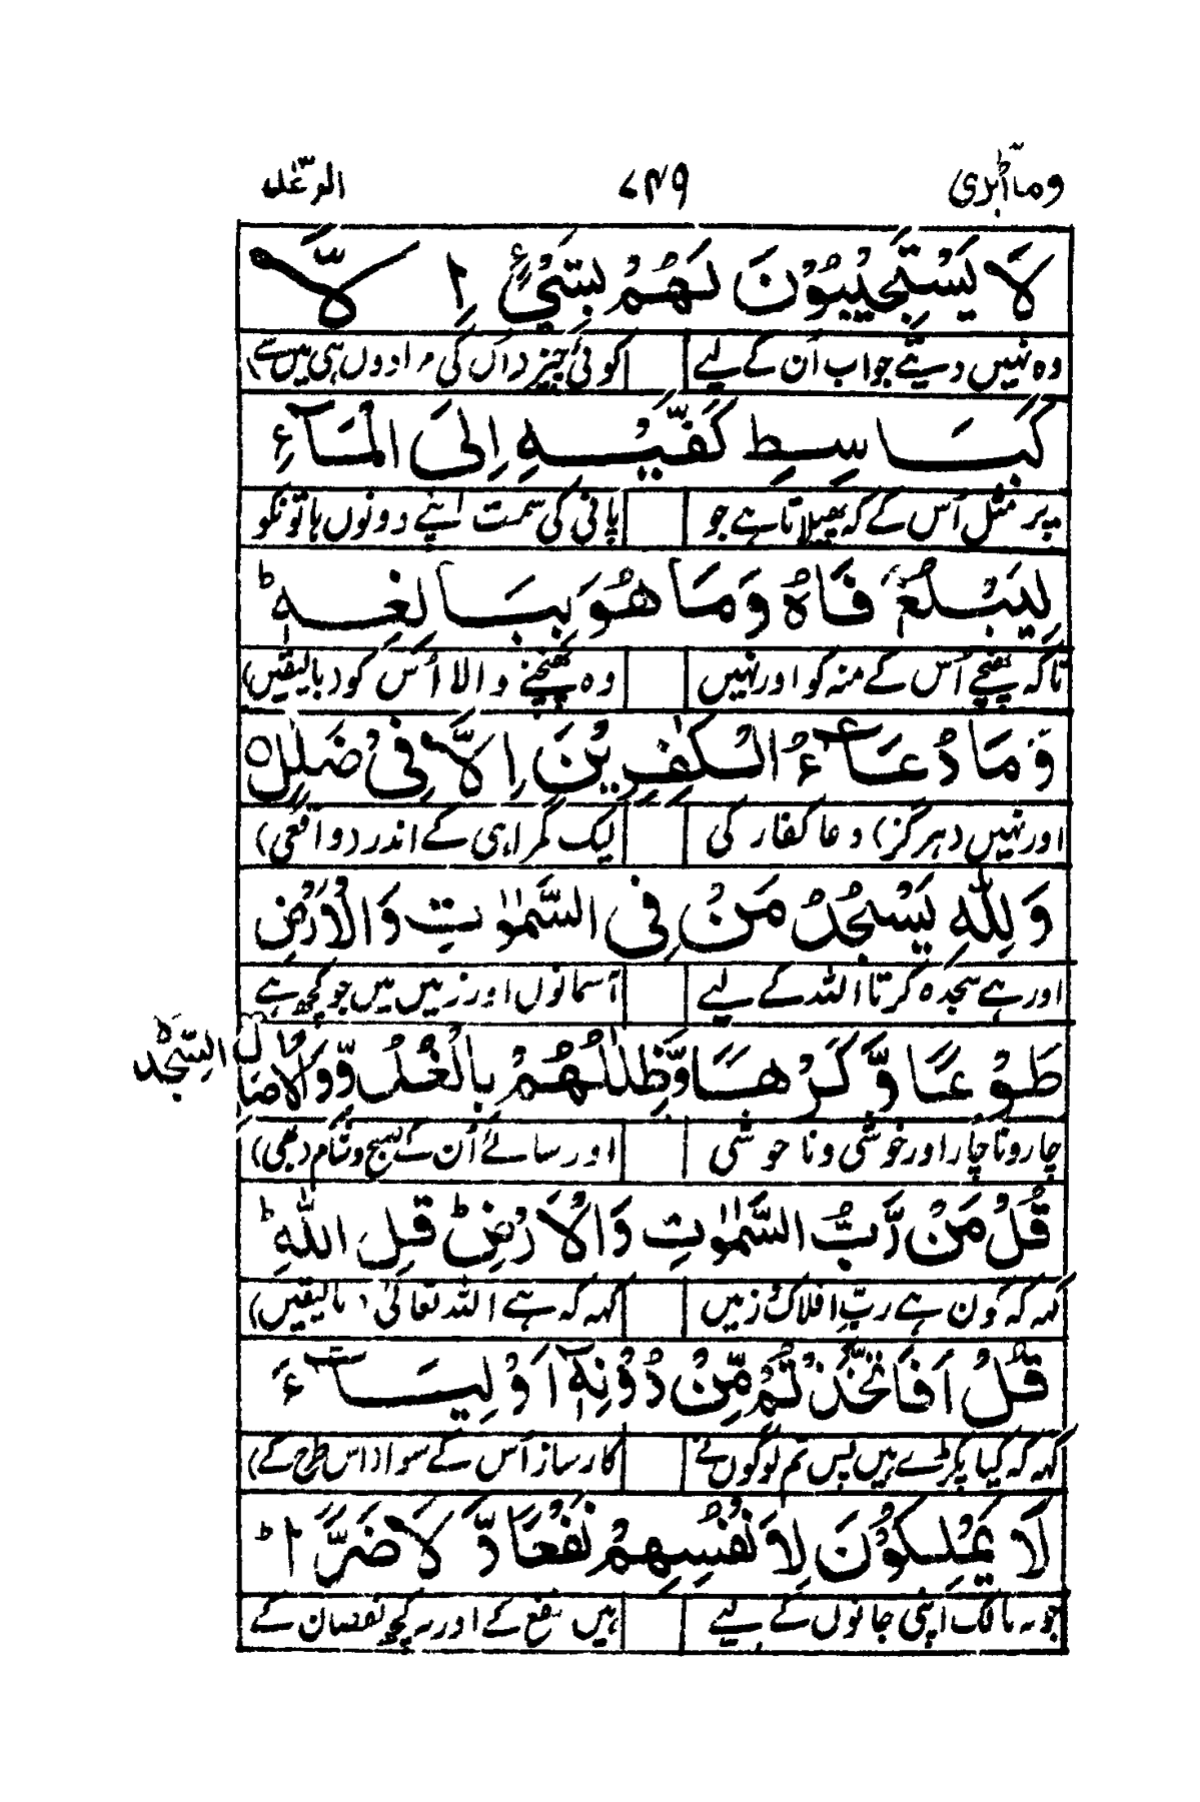 وماۤ اُبرّئ ۷۴۹ الرّعد
لَا يَسْتَجِيْبُوْنَ لَهُمْ بِشَيْءٍ اِلَّا
وہ نہیں دیتے جواب اُن کے لیے کوئی چیز (اُن کی مرادوں ہی میں سے)
كَبَاسِطِ كَفَّيْهِ اِلَى الْمَآءِ
پر مثل اُس کے کہ پھیلاتا ہے جو پانی کی سمت اپنے دونوں ہاتونکو
لِيَبْلُغَ فَاهُ وَمَا هُوَ بِبَالِغِهٖ ؕ
تاکہ پہنچے اُس کے منہ کو اور نہیں وہ پہنچنے والا اُس کو (بالیقیں)
وَمَا دُعَآءُ الْكٰفِرِيْنَ اِلَّا فِيْ ضَلٰلٍ ○
اور نہیں (ہرگز) دعا کفار کی لیک گمراہی کے اندر (واقعی)
وَلِلّٰهِ يَسْجُدُ مَنْ فِى السَّمٰوٰتِ وَالْاَرْضِ
اور ہے سجدہ کرتا اللہ کے لیے آسمانوں اور زمیں میں جو کچھ ہے
طَوْعًا وَّكَرْهًا وَّظِلٰلُهُمْ بِالْغُدُوِّ وَالْاٰصَالِ السجدۃ
چار و ناچار اور خوشی و نا خوشی اور سائے اُن کے صبح و شام (بھی)
قُلْ مَنْ رَّبُّ السَّمٰوٰتِ وَالْاَرْضِ ؕ قُلِ اللّٰهُ ؕ
کہہ کہ کون ہے ربِّ افلاک و زمیں کہہ کہ ہے اللہ تعالیٰ (بالیقیں)
قُلْ اَفَاتَّخَذْتُمْ مِّنْ دُوْنِهٖۤ اَوْلِيَآءَ
کہہ کہ کیا پکڑے ہیں پس تم لوگوں نے کارساز اُس کے سوا (اس طرح کے)
لَا يَمْلِكُوْنَ لِاَنْفُسِهِمْ نَفْعًا وَّلَا ضَرًّا ؕ
جو نہ مالک اپنی جانوں کے لیے ہیں نفع کے اور نہ کچھ نقصان کے